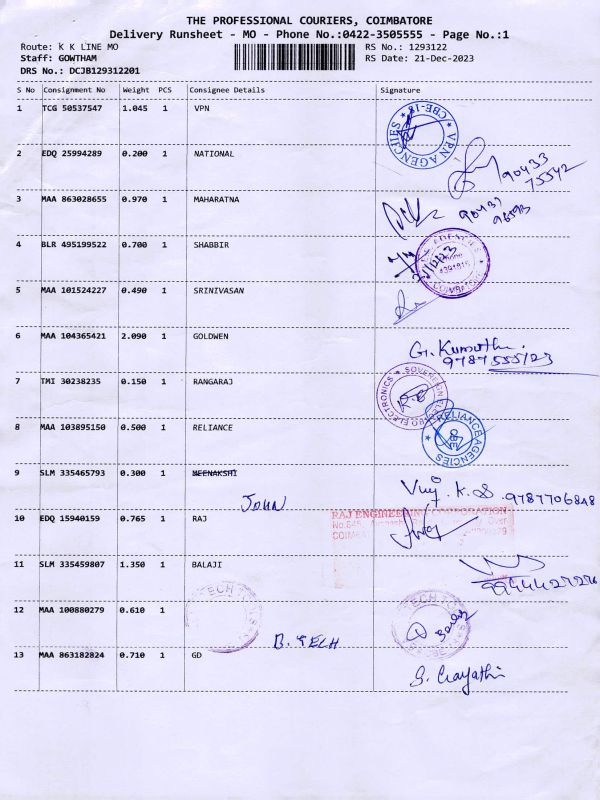 THE PROFESSIONAL COURIERS, COIMBATORE
Delivery Runsheet - MO - Phone No.:0422-3505555 - Page No.:1
Route: K K LINE MO
RS No.: 1293122
Staff: GOWTHAM
RS Date: 21-Dec-2023
DRS No.: DCJB129312201
S No Consignment No Weight PCS Consignee Details Signature
1 TCG 50537547 1.045 1 VPN
VPN AGENCIES CBE-18
2 EDQ 25994289 0.200 1 NATIONAL
90433
75542
3 MAA 863028655 0.970 1 MAHARATNA
90437
4 BLR 495199522 0.700 1 SHABBIR
AGENCIES
COIMBATORE
5 MAA 101524227 0.490 1 SRINIVASAN
6 MAA 104365421 2.090 1 GOLDWEN
G. Kumuthi
9787 555123
7 TMI 30238235 0.150 1 RANGARAJ
SOVEREIGN ELECTRONICS
8 MAA 103895150 0.500 1 RELIANCE
RELIANCE AGENCIES
9 SLM 335465793 0.300 1 MEENAKSHI
JOHN
Vijj K.S 9787706848
10 EDQ 15940159 0.765 1 RAJ
RAJ ENGINEERING CORPORATION
11 SLM 335459807 1.350 1 BALAJI
9944427276
12 MAA 100880279 0.610 1
B. TECH
TECH
13 MAA 863182824 0.710 1 GD
S. Gayathri